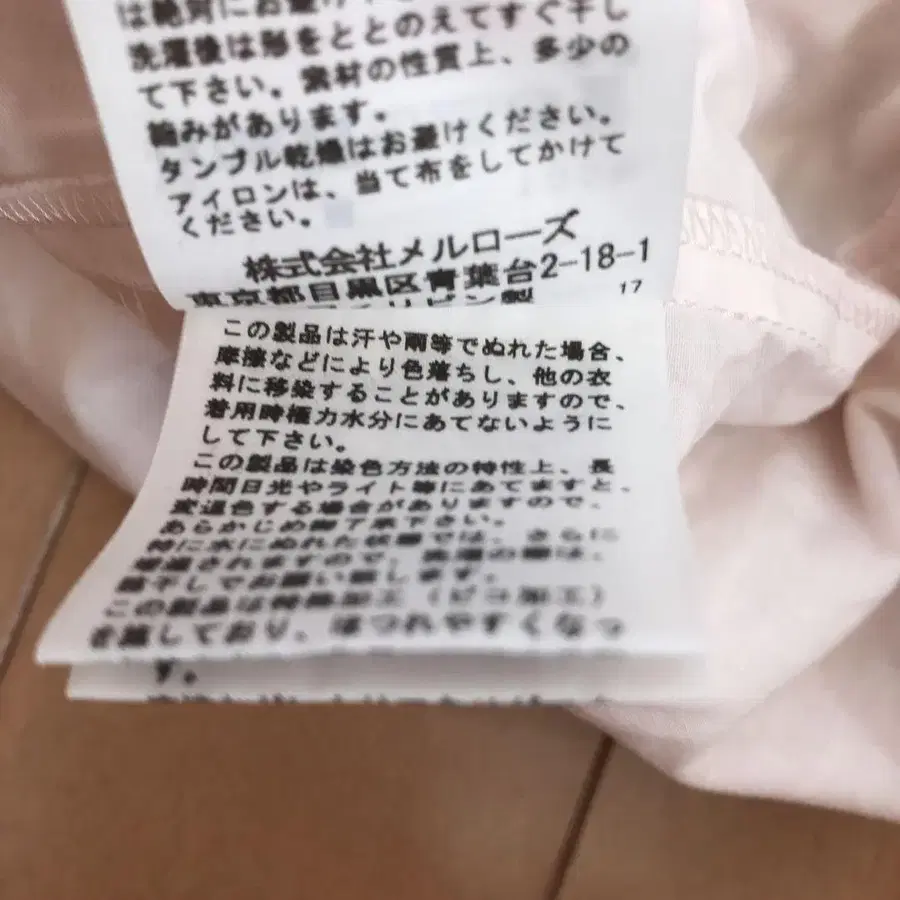 は絶対にお避け
洗濯後は形をととのえてすぐ干し
て下さい。素材の性質上、多少の
縮みがあります。
タンブル乾燥はお避けください。
アイロンは、当て布をしてかけて
ください。
株式会社メルローズ
東京都目黒区青葉台2-18-1
フィリピン製
17
この製品は汗や雨等でぬれた場合、
摩擦などにより色落ちし、他の衣
料に移染することがありますので、
着用時極力水分にあてないように
して下さい。
この製品は染色方法の特性上、長
時間日光やライト等にあてますと、
変退色する場合がありますので、
あらかじめ御了承下さい。
特に水にぬれた状態では、さらに
されますので、
陰干しでお願い致します。
この製品は特殊加工(ピコ加工)
を施しており、ほつれやすくなっ
す。